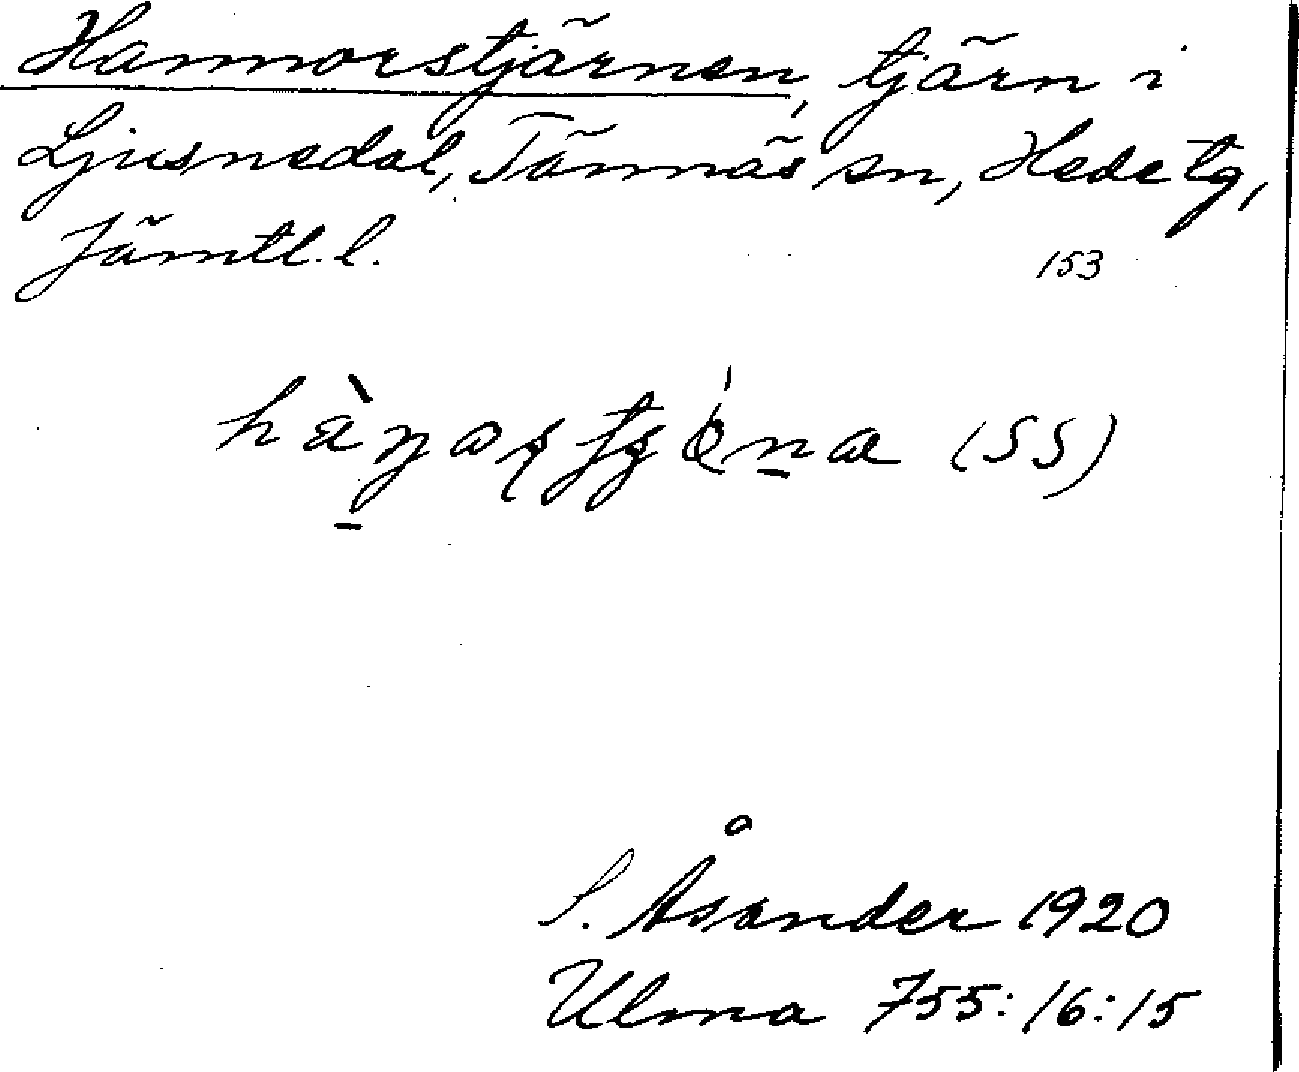 Hammorstjärnen, tjärn i
Ljusnedal, Tännäs sn, Hede tg,
Jämtl. l.
153
(SS)
S. Åsander 1920
Ulma 755:16:15